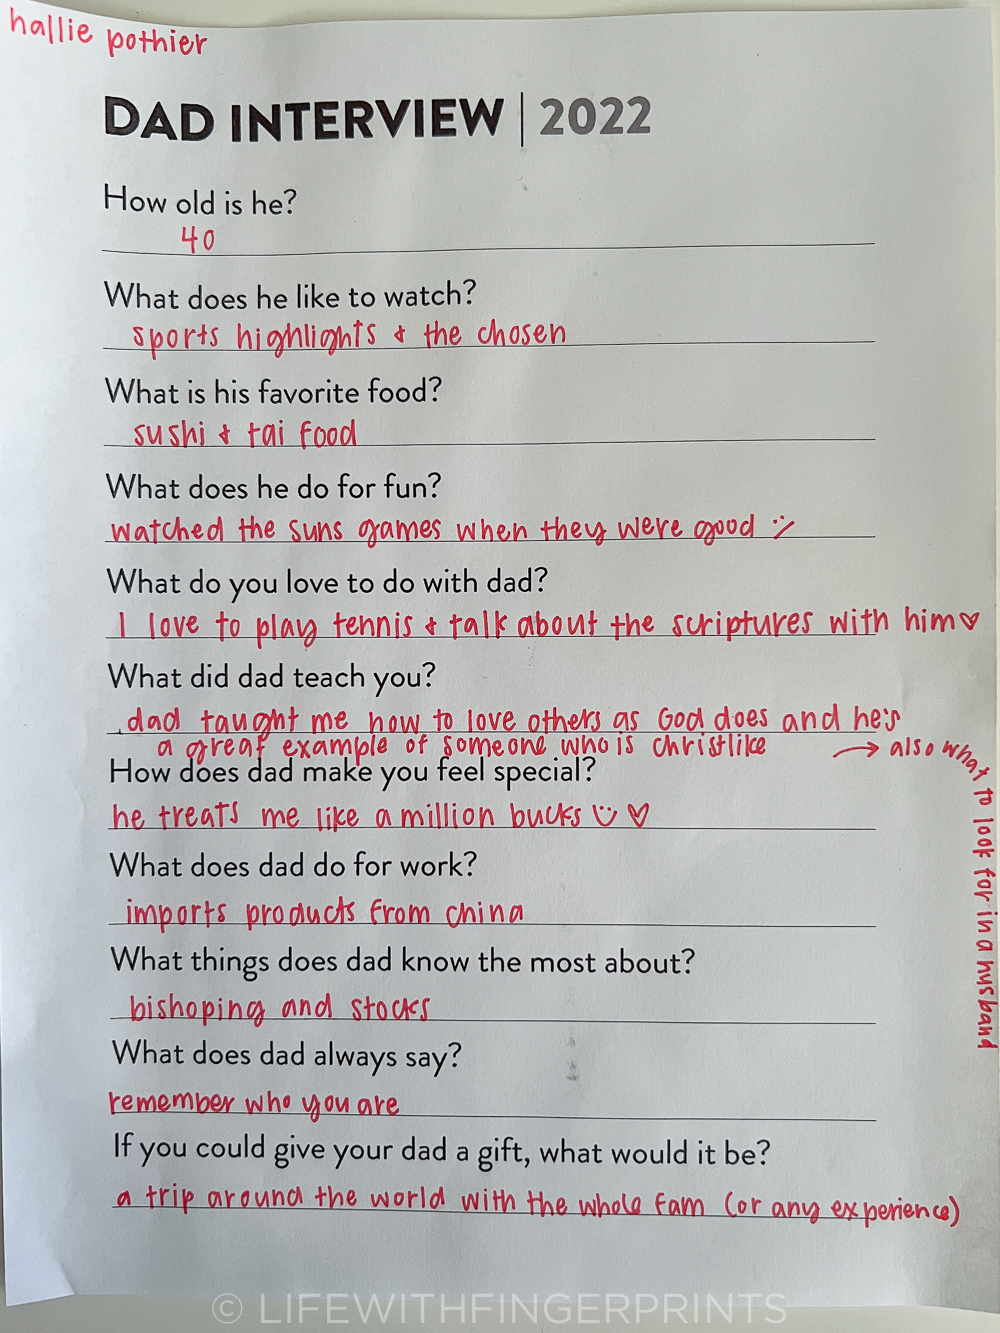 hallie pothier
DAD INTERVIEW | 2022
How old is he?
40
What does he like to watch?
sports highlights & the chosen
What is his favorite food?
sushi & tai food
What does he do for fun?
watched the suns games when they were good :/
What do you love to do with dad?
I love to play tennis & talk about the scriptures with him ♡
What did dad teach you?
dad taught me how to love others as God does and he's
a great example of someone who is christlike → also what to look for in a husband
How does dad make you feel special?
he treats me like a million bucks ☺ ♡
What does dad do for work?
imports products from china
What things does dad know the most about?
bishoping and stocks
What does dad always say?
remember who you are
If you could give your dad a gift, what would it be?
a trip around the world with the whole fam (or any experience)
© LIFEWITHFINGERPRINTS